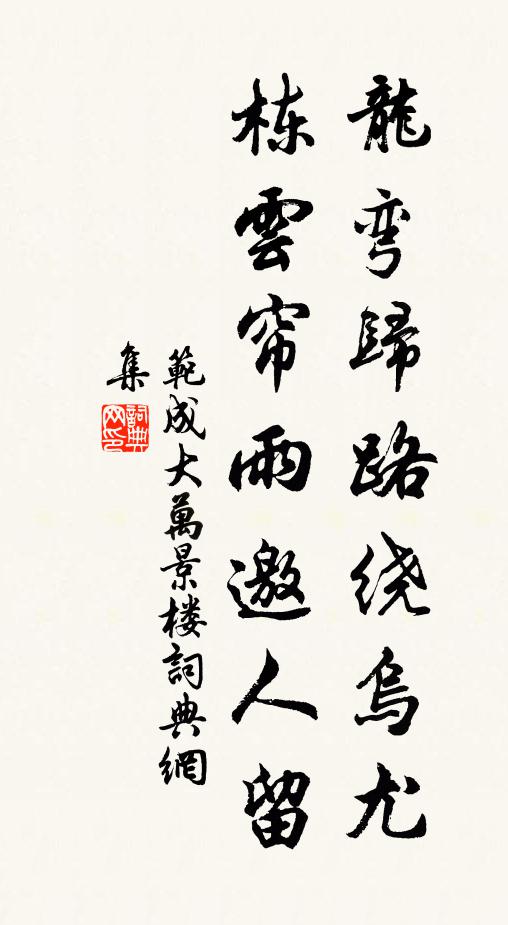 龍弯歸路绕烏尤
栋雲帘雨邀人留
範成大萬景楼詞典網
集
詞典网印